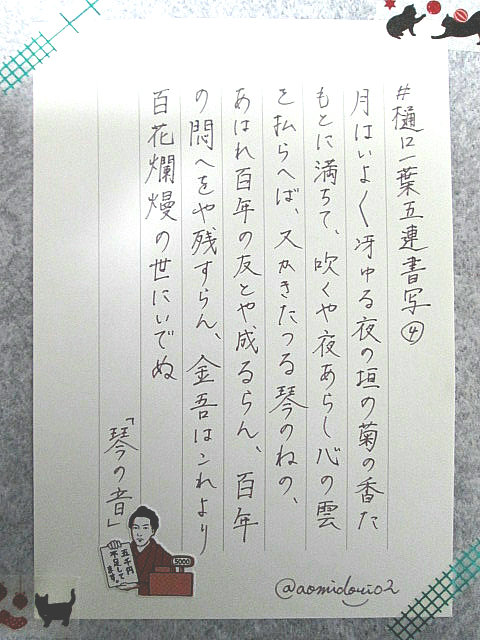 #樋口一葉五連書写④
月はいよく冴ゆる夜の垣の菊の香た
もとに満ちて、吹くや夜あらし心の雲
を払らへば、又かきたつる琴のねの、
あはれ百年の友とや成るらん、百年
の悶へをや残すらん、金吾はこれより
百花爛熳の世にいでぬ
「琴の音」
五千円
不足して
ます。
5000
@aomidorio2